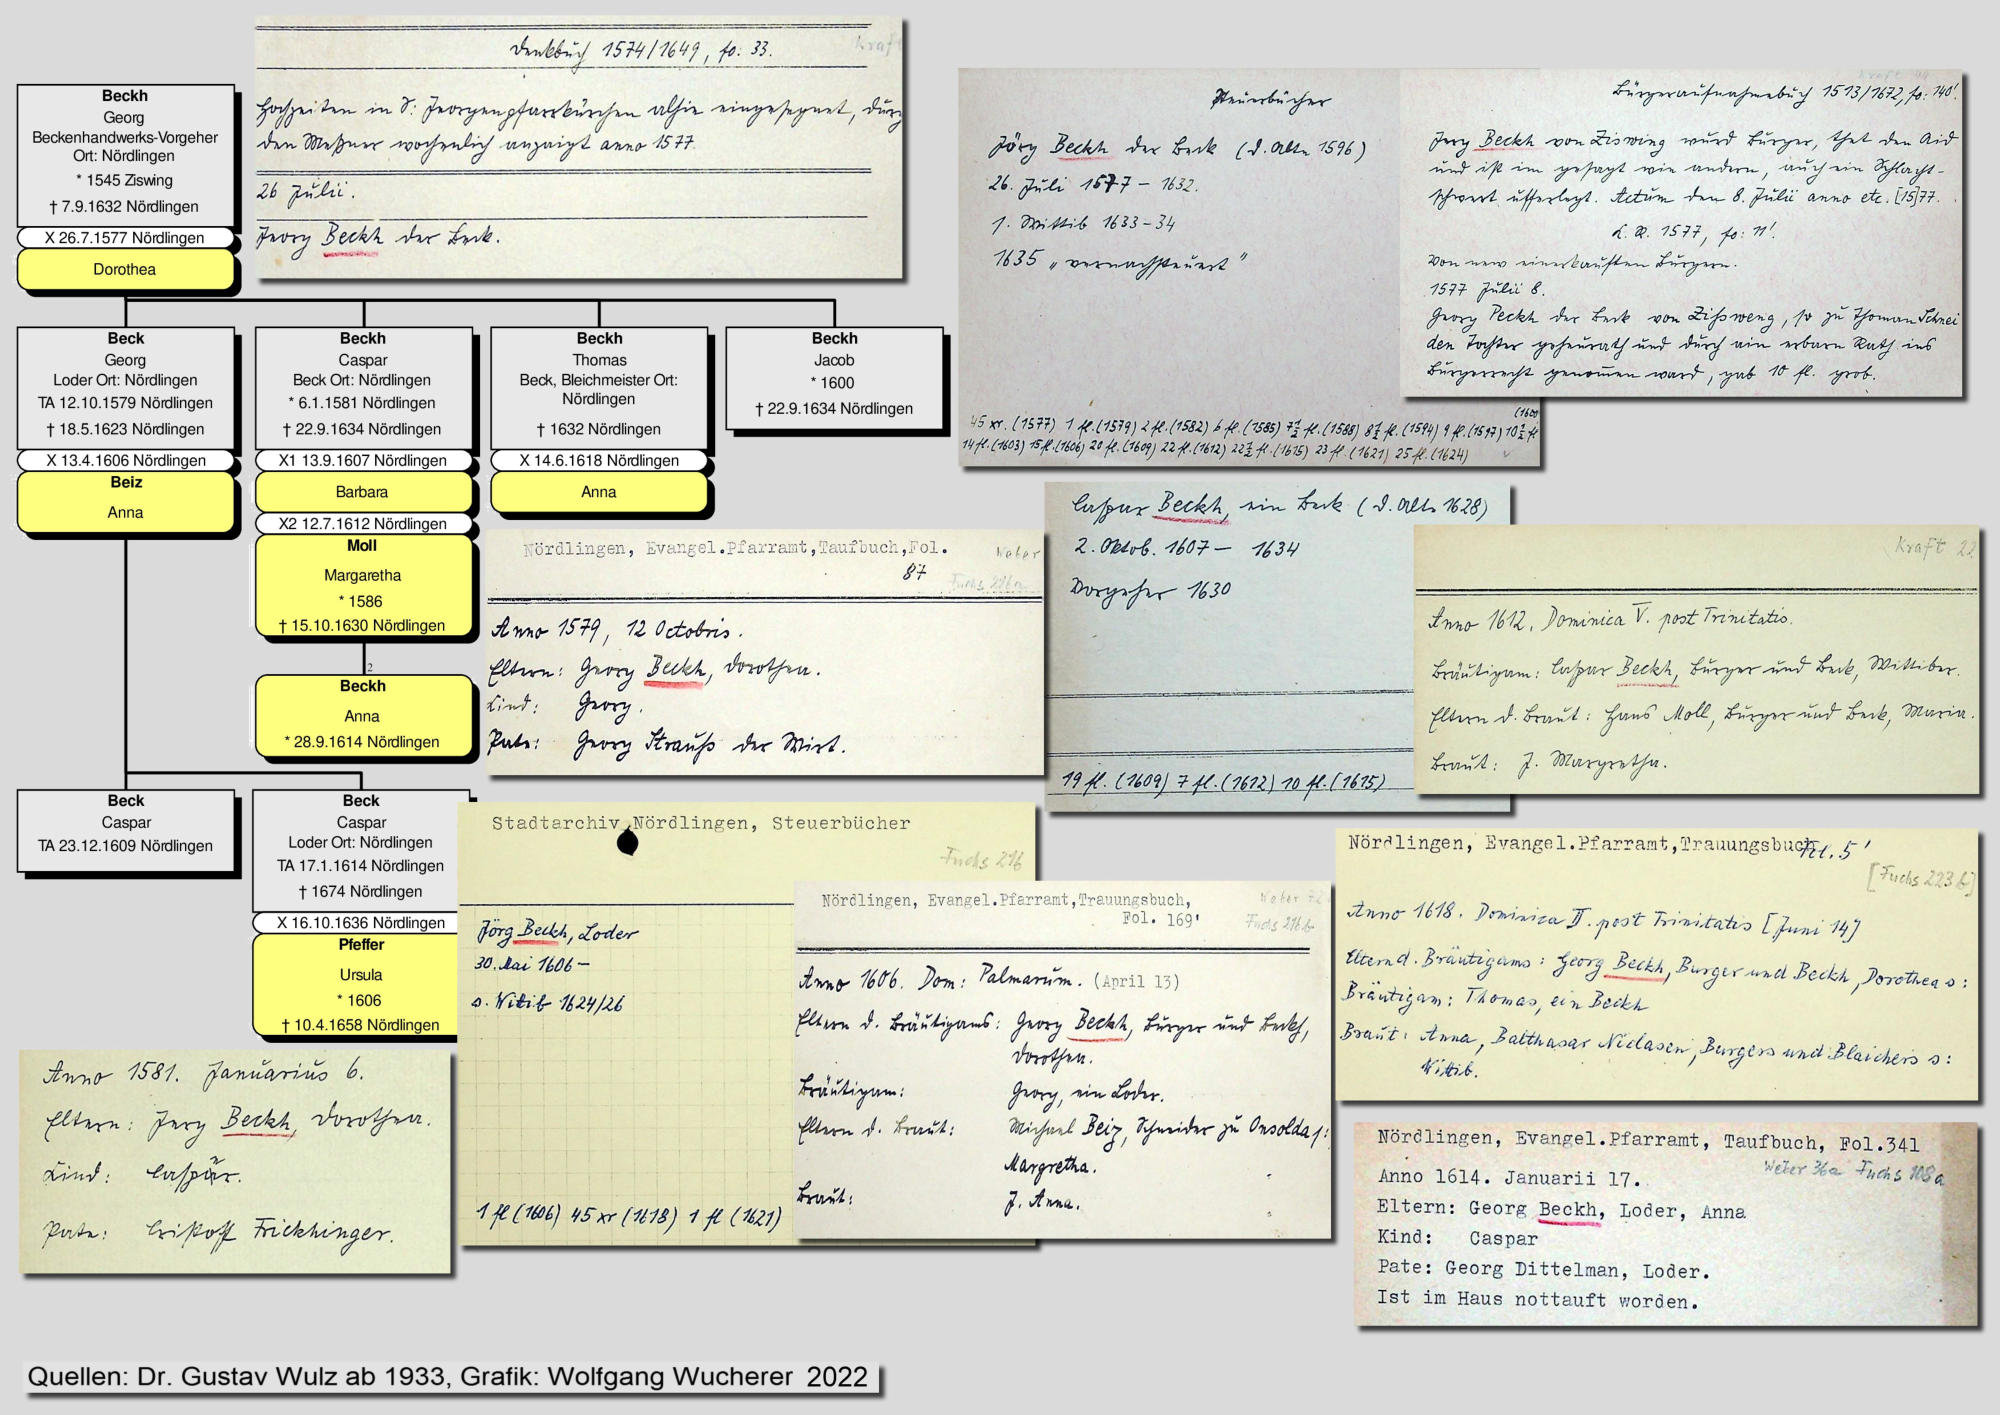 Beckh
Georg
Beckenhandwerks-Vorgeher
Ort: Nördlingen
* 1545 Ziswing
† 7.9.1632 Nördlingen
X 26.7.1577 Nördlingen
Dorothea
Beck
Georg
Loder Ort: Nördlingen
TA 12.10.1579 Nördlingen
† 18.5.1623 Nördlingen
X 13.4.1606 Nördlingen
Beiz
Anna
Beckh
Caspar
Beck Ort: Nördlingen
* 6.1.1581 Nördlingen
† 22.9.1634 Nördlingen
X1 13.9.1607 Nördlingen
Barbara
X2 12.7.1612 Nördlingen
Moll
Margaretha
* 1586
† 15.10.1630 Nördlingen
2
Beckh
Anna
* 28.9.1614 Nördlingen
Beckh
Thomas
Beck, Bleichmeister Ort:
Nördlingen
† 1632 Nördlingen
X 14.6.1618 Nördlingen
Anna
Beckh
Jacob
* 1600
† 22.9.1634 Nördlingen
Beck
Caspar
TA 23.12.1609 Nördlingen
Beck
Caspar
Loder Ort: Nördlingen
TA 17.1.1614 Nördlingen
† 1674 Nördlingen
X 16.10.1636 Nördlingen
Pfeffer
Ursula
* 1606
† 10.4.1658 Nördlingen
Denkbuch 1574/1649, fo: 33.
Kraft
Hochzeiten in S: Jeorgenpfarrkürchen alhie eingesegnet, durch
den Meßner wochenlich anzaigt anno 1577
26 Julii.
Jeorg Beckh der Beck.
Steuerbücher
Jörg Beckh der Beck (d. Alte 1596)
26. Juli 1577 - 1632.
1. Wittib 1633-34
1635 "vernachsteuert"
45 xr. (1577) 1 fl. (1579) 2 fl. (1582) 6 fl. (1585) 7½ fl. (1588) 8½ fl. (1594) 9 fl. (1597) 10½ fl (1600
14 fl. (1603) 15 fl. (1606) 20 fl. (1609) 22 fl. (1612) 22½ fl. (1615) 23 fl. (1621) 25 fl. (1624)
Bürgeraufnahmebuch 1513/1672, fo: 140'.
Jerg Beckh von Ziswing wurd Burger, thet den Aid
und ist im gesagt wie andern, auch ein Schlacht-
schwert ufferlegt. Actum den 8. Julii anno etc. [15]77.
L. R. 1577, fo: 11'.
Von new einerkauften Burgern.
1577 Julii 8.
Georg Peckh der Beck von Zißweng, so zu Thoman Schnei
den Tochter geheurath und durch ain erbarn Rath ins
Burgerrecht genomen ward, gab 10 fl. grob.
Caspar Beckh, ein Beck (d. Alte 1628)
2. Oktob. 1607 - 1634
Vorgeher 1630
19 fl. (1609) 7 fl. (1612) 10 fl. (1615)
Kraft 22
Anno 1612. Dominica V. post Trinitatis.
Bräutigam: Caspar Beckh, Burger und Beck, Wittiber.
Eltern d. Braut: Hans Moll, Burger und Beck, Maria.
Braut: J. Margretha.
Nördlingen, Evangel.Pfarramt,Taufbuch,Fol.
87
Weber
Fuchs 216a
Anno 1579, 12 Octobris.
Eltern: Georg Beckh, Dorothea.
Kind: Georg.
Pate: Georg Strauß der Wirt.
Stadtarchiv Nördlingen, Steuerbücher
Fuchs 216
Jörg Beckh, Loder
30. Mai 1606 -
s. Witib 1624/26
1 fl (1606) 45 xr (1618) 1 fl (1621)
Nördlingen, Evangel.Pfarramt,Trauungsbuch,
Fol. 169'
Weber 72
Fuchs 216b
Anno 1606. Dom: Palmarum. (April 13)
Eltern d. Bräutigams: Georg Beckh, Burger und Beckh,
Dorothea.
Bräutigam: Georg, ein Loder.
Eltern d. Braut: Michael Beiz, Schneider zu Onsolda s:
Margretha.
Braut: J. Anna.
Nördlingen, Evangel.Pfarramt,Trauungsbuch
Fol. 5'
[Fuchs 223b]
Anno 1618. Dominica II. post Trinitatis [Juni 14]
Eltern d. Bräutigams: Georg Beckh, Burger und Beckh, Dorothea s:
Bräutigam: Thomas, ein Beckh
Braut: Anna, Balthasar Niclasen, Burgers und Blaichers s:
Wittib.
Nördlingen, Evangel.Pfarramt, Taufbuch, Fol.341
Weber 36a Fuchs 108a
Anno 1614. Januarii 17.
Eltern: Georg Beckh, Loder, Anna
Kind: Caspar
Pate: Georg Dittelman, Loder.
Ist im Haus nottauft worden.
Anno 1581. Januarius 6.
Eltern: Jerg Beckh, Dorothea.
Kind: Caspar.
Pate: Cristoff Frickhinger.
Quellen: Dr. Gustav Wulz ab 1933, Grafik: Wolfgang Wucherer 2022